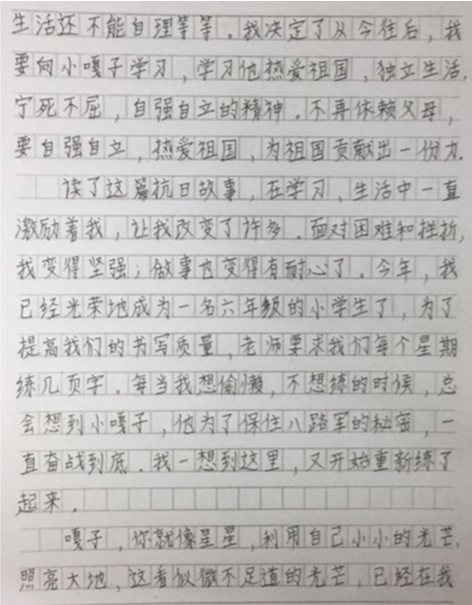 生活还不能自理等等．我决定了从今往后，我
要向小嘎子学习，学习他热爱祖国，独立生活，
宁死不屈，自强自立的精神．不再依赖父母，
要自强自立，热爱祖国，为祖国贡献出一份力．
读了这篇抗日故事，在学习、生活中一直
激励着我，让我改变了许多．面对困难和挫折，
我变得坚强；做事也变得有耐心了．今年，我
已经光荣地成为一名六年级的小学生了，为了
提高我们的书写质量，老师要求我们每个星期
练几页字．每当我想偷懒，不想练的时候，总
会想到小嘎子，他为了保住八路军的秘密，一
直奋战到底．我一想到这里，又开始重新练了
起来．
嘎子，你就像星星，利用自己小小的光芒，
照亮大地，这看似微不足道的光芒，已经在我